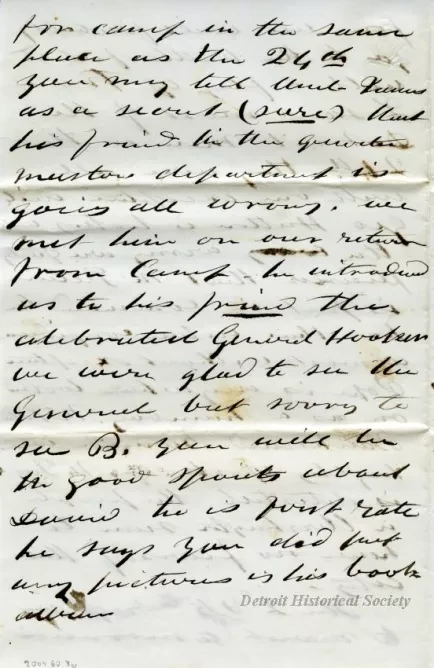 for camp in the same
place as the 24th
you may tell Uncle James
as a secret (sure) that
his friend in the quarter
masters department is
going all wrong. we
met him on our return
from Camp he introduced
us to his friend the
celebrated General Hooker
we were glad to see the
General but sorry to
see B. you will be
in good spirits about
David he is first rate
he says you did put
any pictures is his book
album
Detroit Historical Society